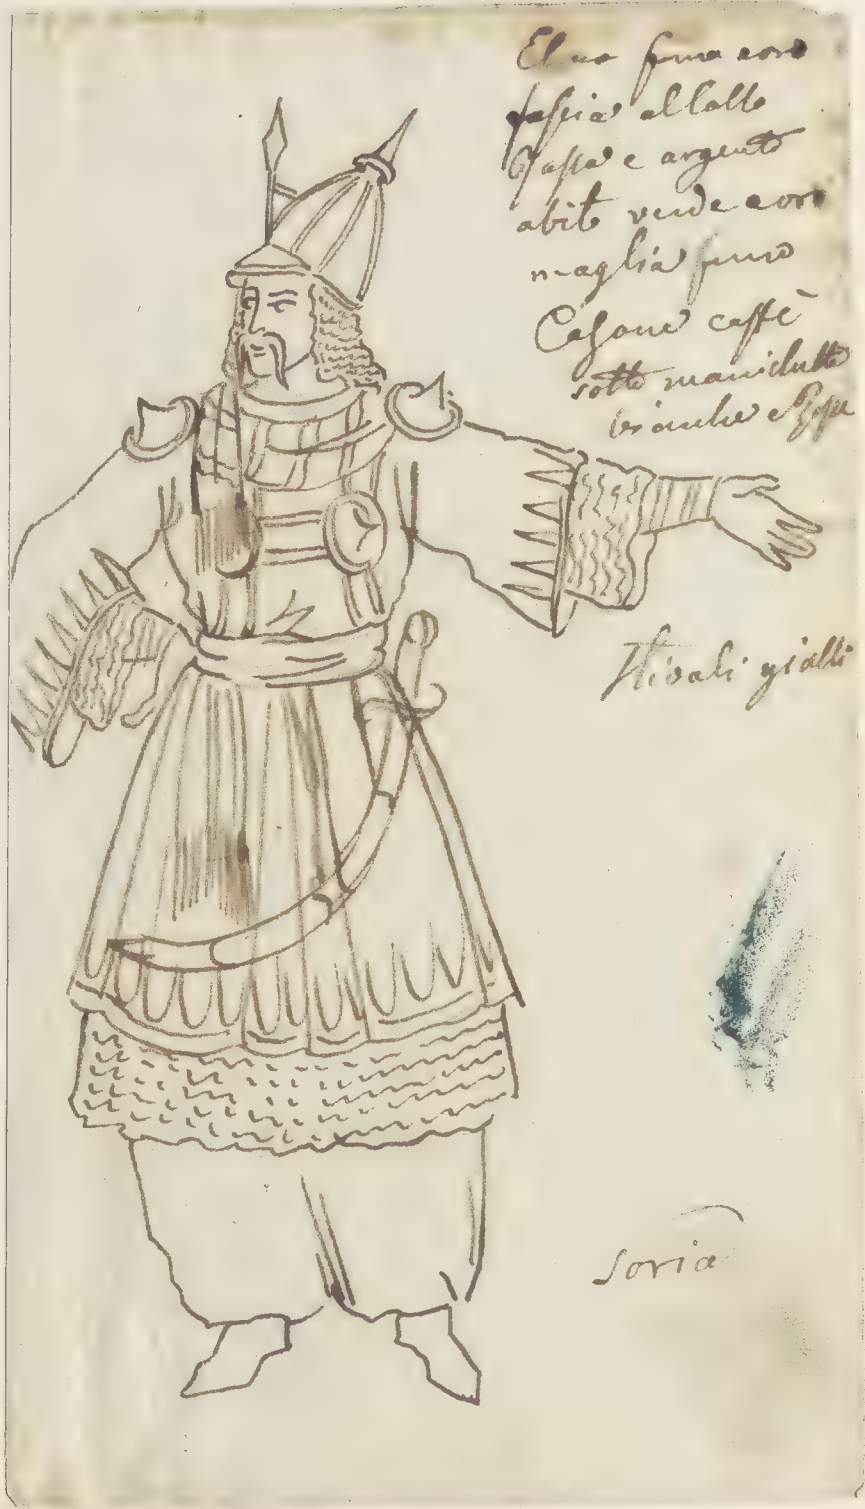 Elmo fumo e oro
fascia al collo
Rossa e argento
abito verde e oro
maglia fumo
Calzone caffè
sotto manichette
bianche e Rosse
Stivali gialli
soria